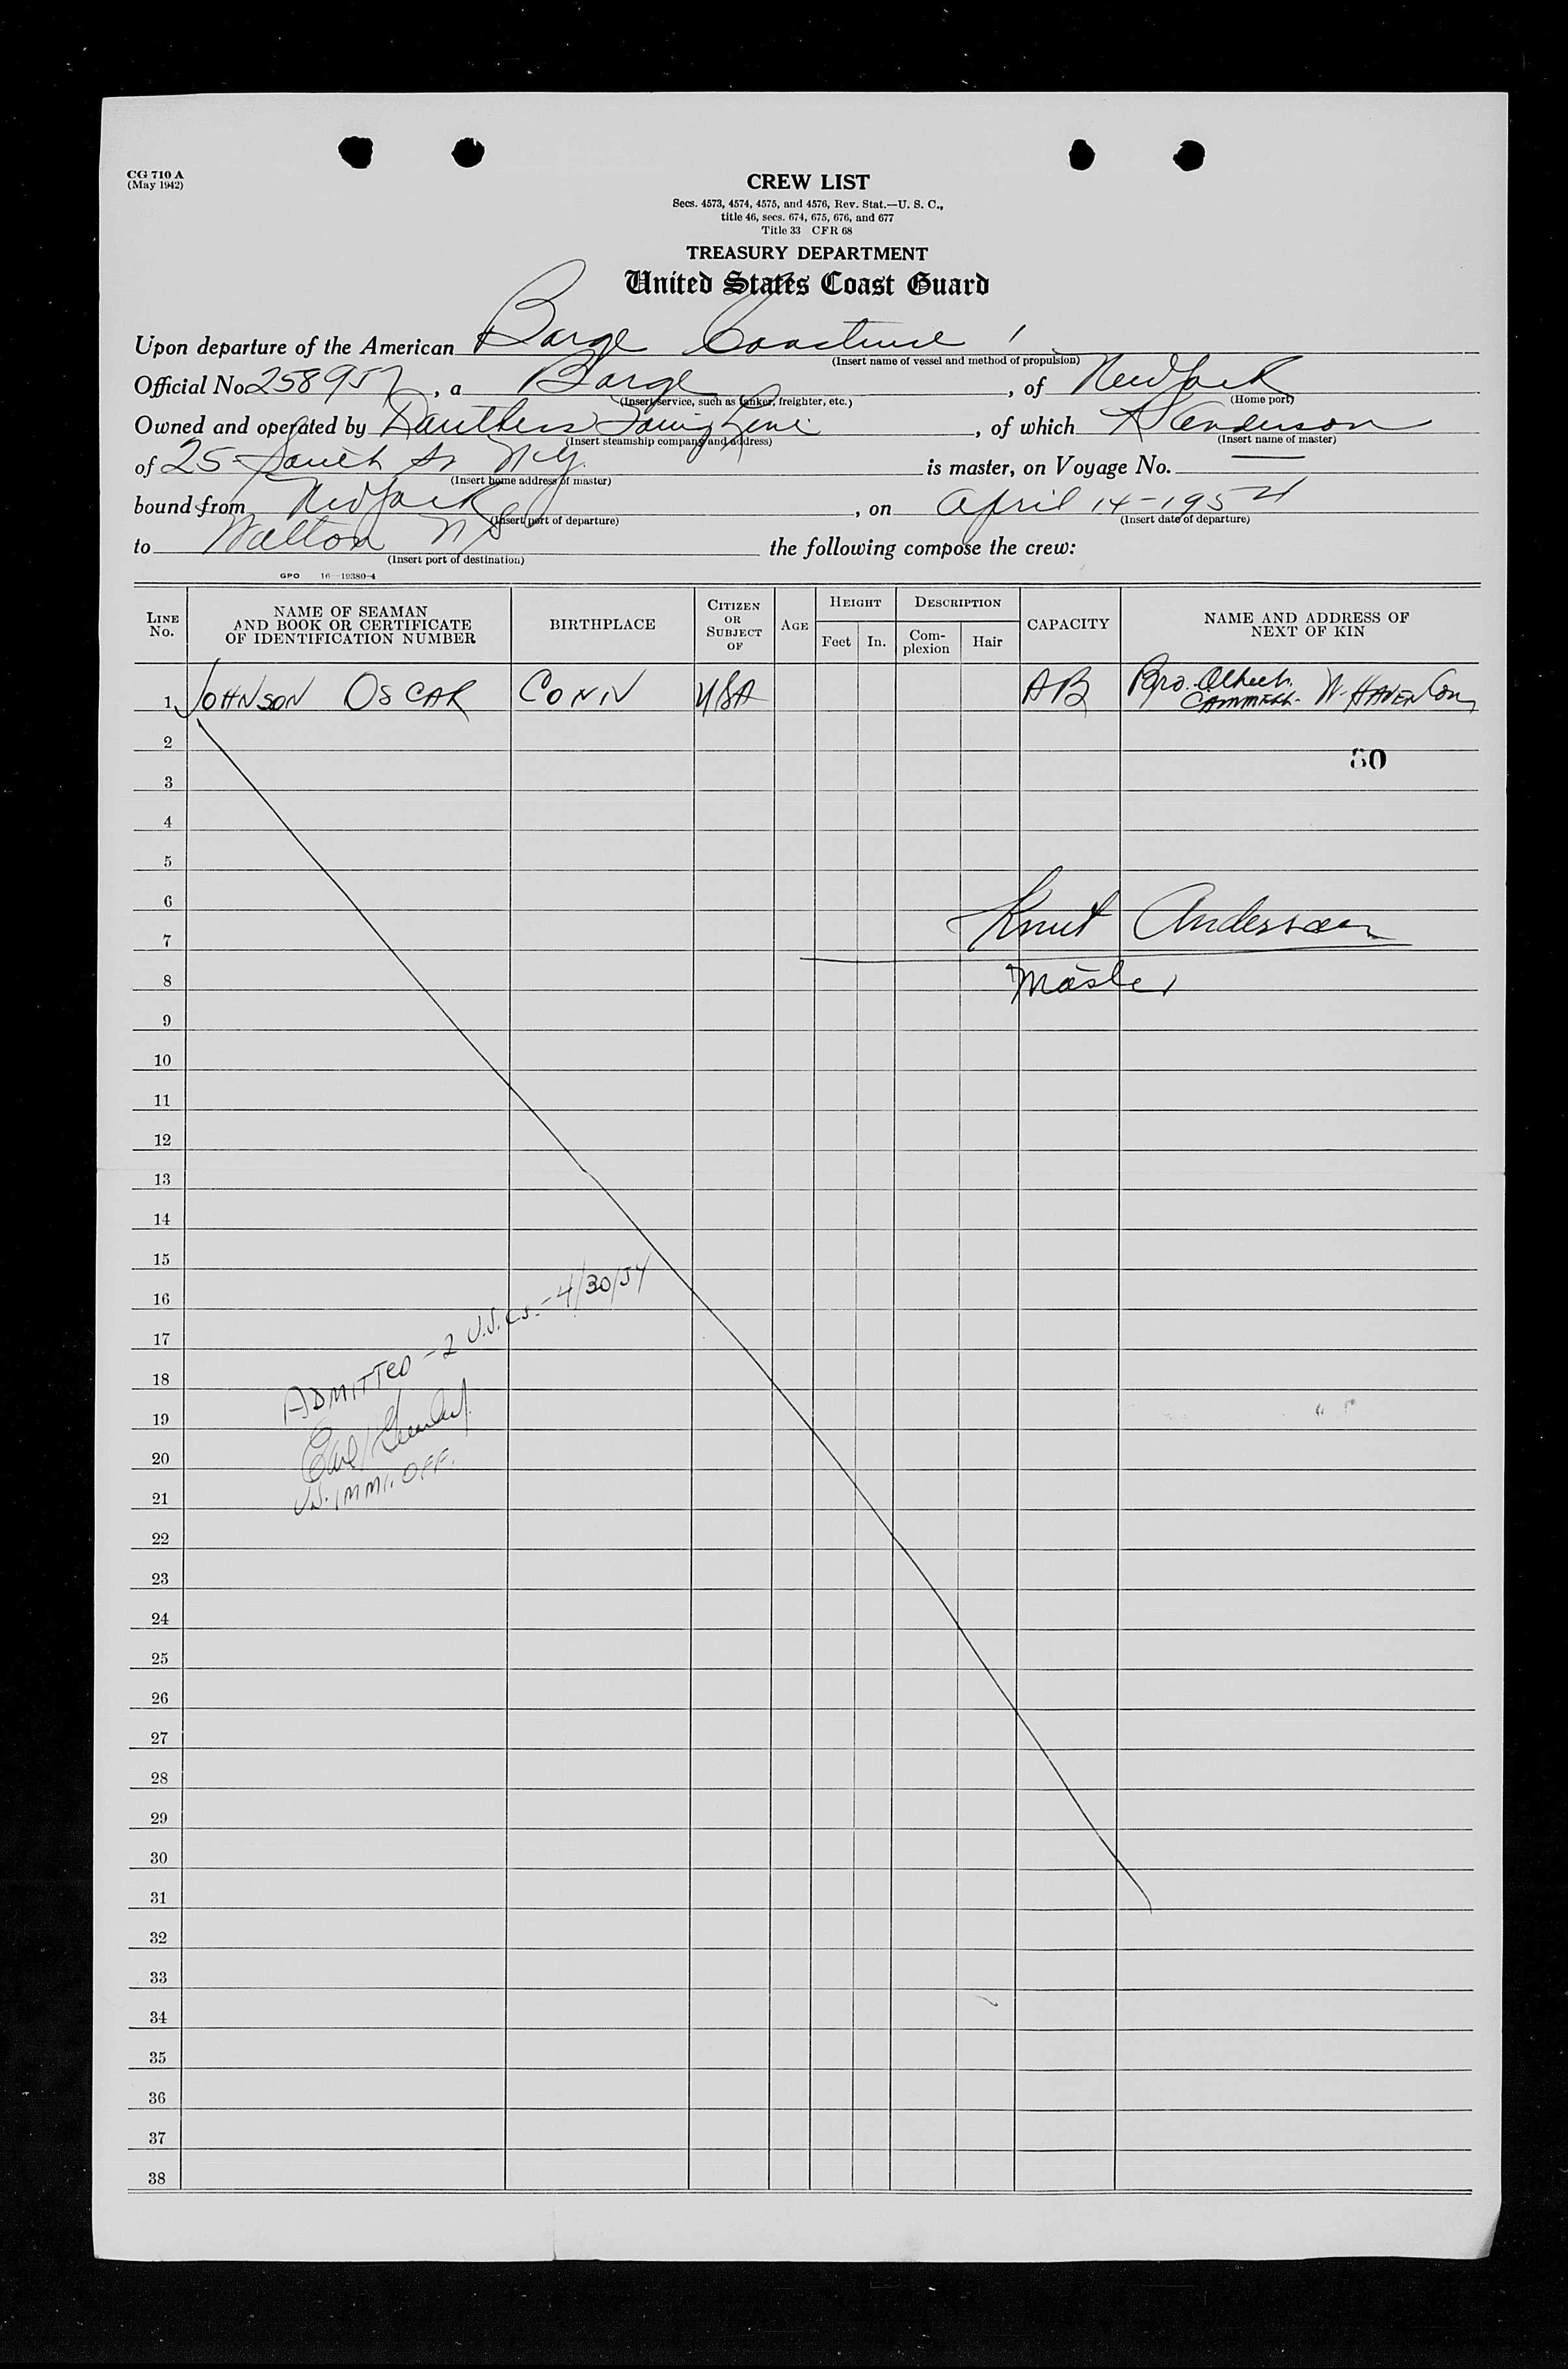 CG 710 A
(May 1942)
CREW LIST
Secs. 4573, 4574, 4575, and 4576, Rev. Stat.—U. S. C.,
title 46, secs. 674, 675, 676, and 677
Title 33 CFR 68
TREASURY DEPARTMENT
United States Coast Guard
Upon departure of the American Barge 1
(Insert name of vessel and method of propulsion)
Official No. 258957, a Barge, of New York
(Insert service, such as tanker, freighter, etc.) (Home port)
Owned and operated by Dauntless Towing Line, of which K Anderson
(Insert steamship company and address) (Insert name of master)
of 25 South St N.Y. is master, on Voyage No. —
(Insert home address of master)
bound from New York, on April 14-1954
(Insert port of departure) (Insert date of departure)
to Walton N S the following compose the crew:
(Insert port of destination)
GPO 16—19380-4
LINE No. NAME OF SEAMAN AND BOOK OR CERTIFICATE OF IDENTIFICATION NUMBER BIRTHPLACE CITIZEN OR SUBJECT OF AGE HEIGHT Feet In. DESCRIPTION Complexion Hair CAPACITY NAME AND ADDRESS OF NEXT OF KIN
1 JOHNSON OSCAR CONN USA AB Bro. Albert. W-HAVEN Conn
2
50
3
4
5
6
Knut Anderssen
7
8 Master
9
10
11
12
13
14
15
16
17
18
ADMITTED - 2 U.S.Cs. - 4/30/54
19
Earl
20
U.S. IMMI. OFF.
21
22
23
24
25
26
27
28
29
30
31
32
33
34
35
36
37
38